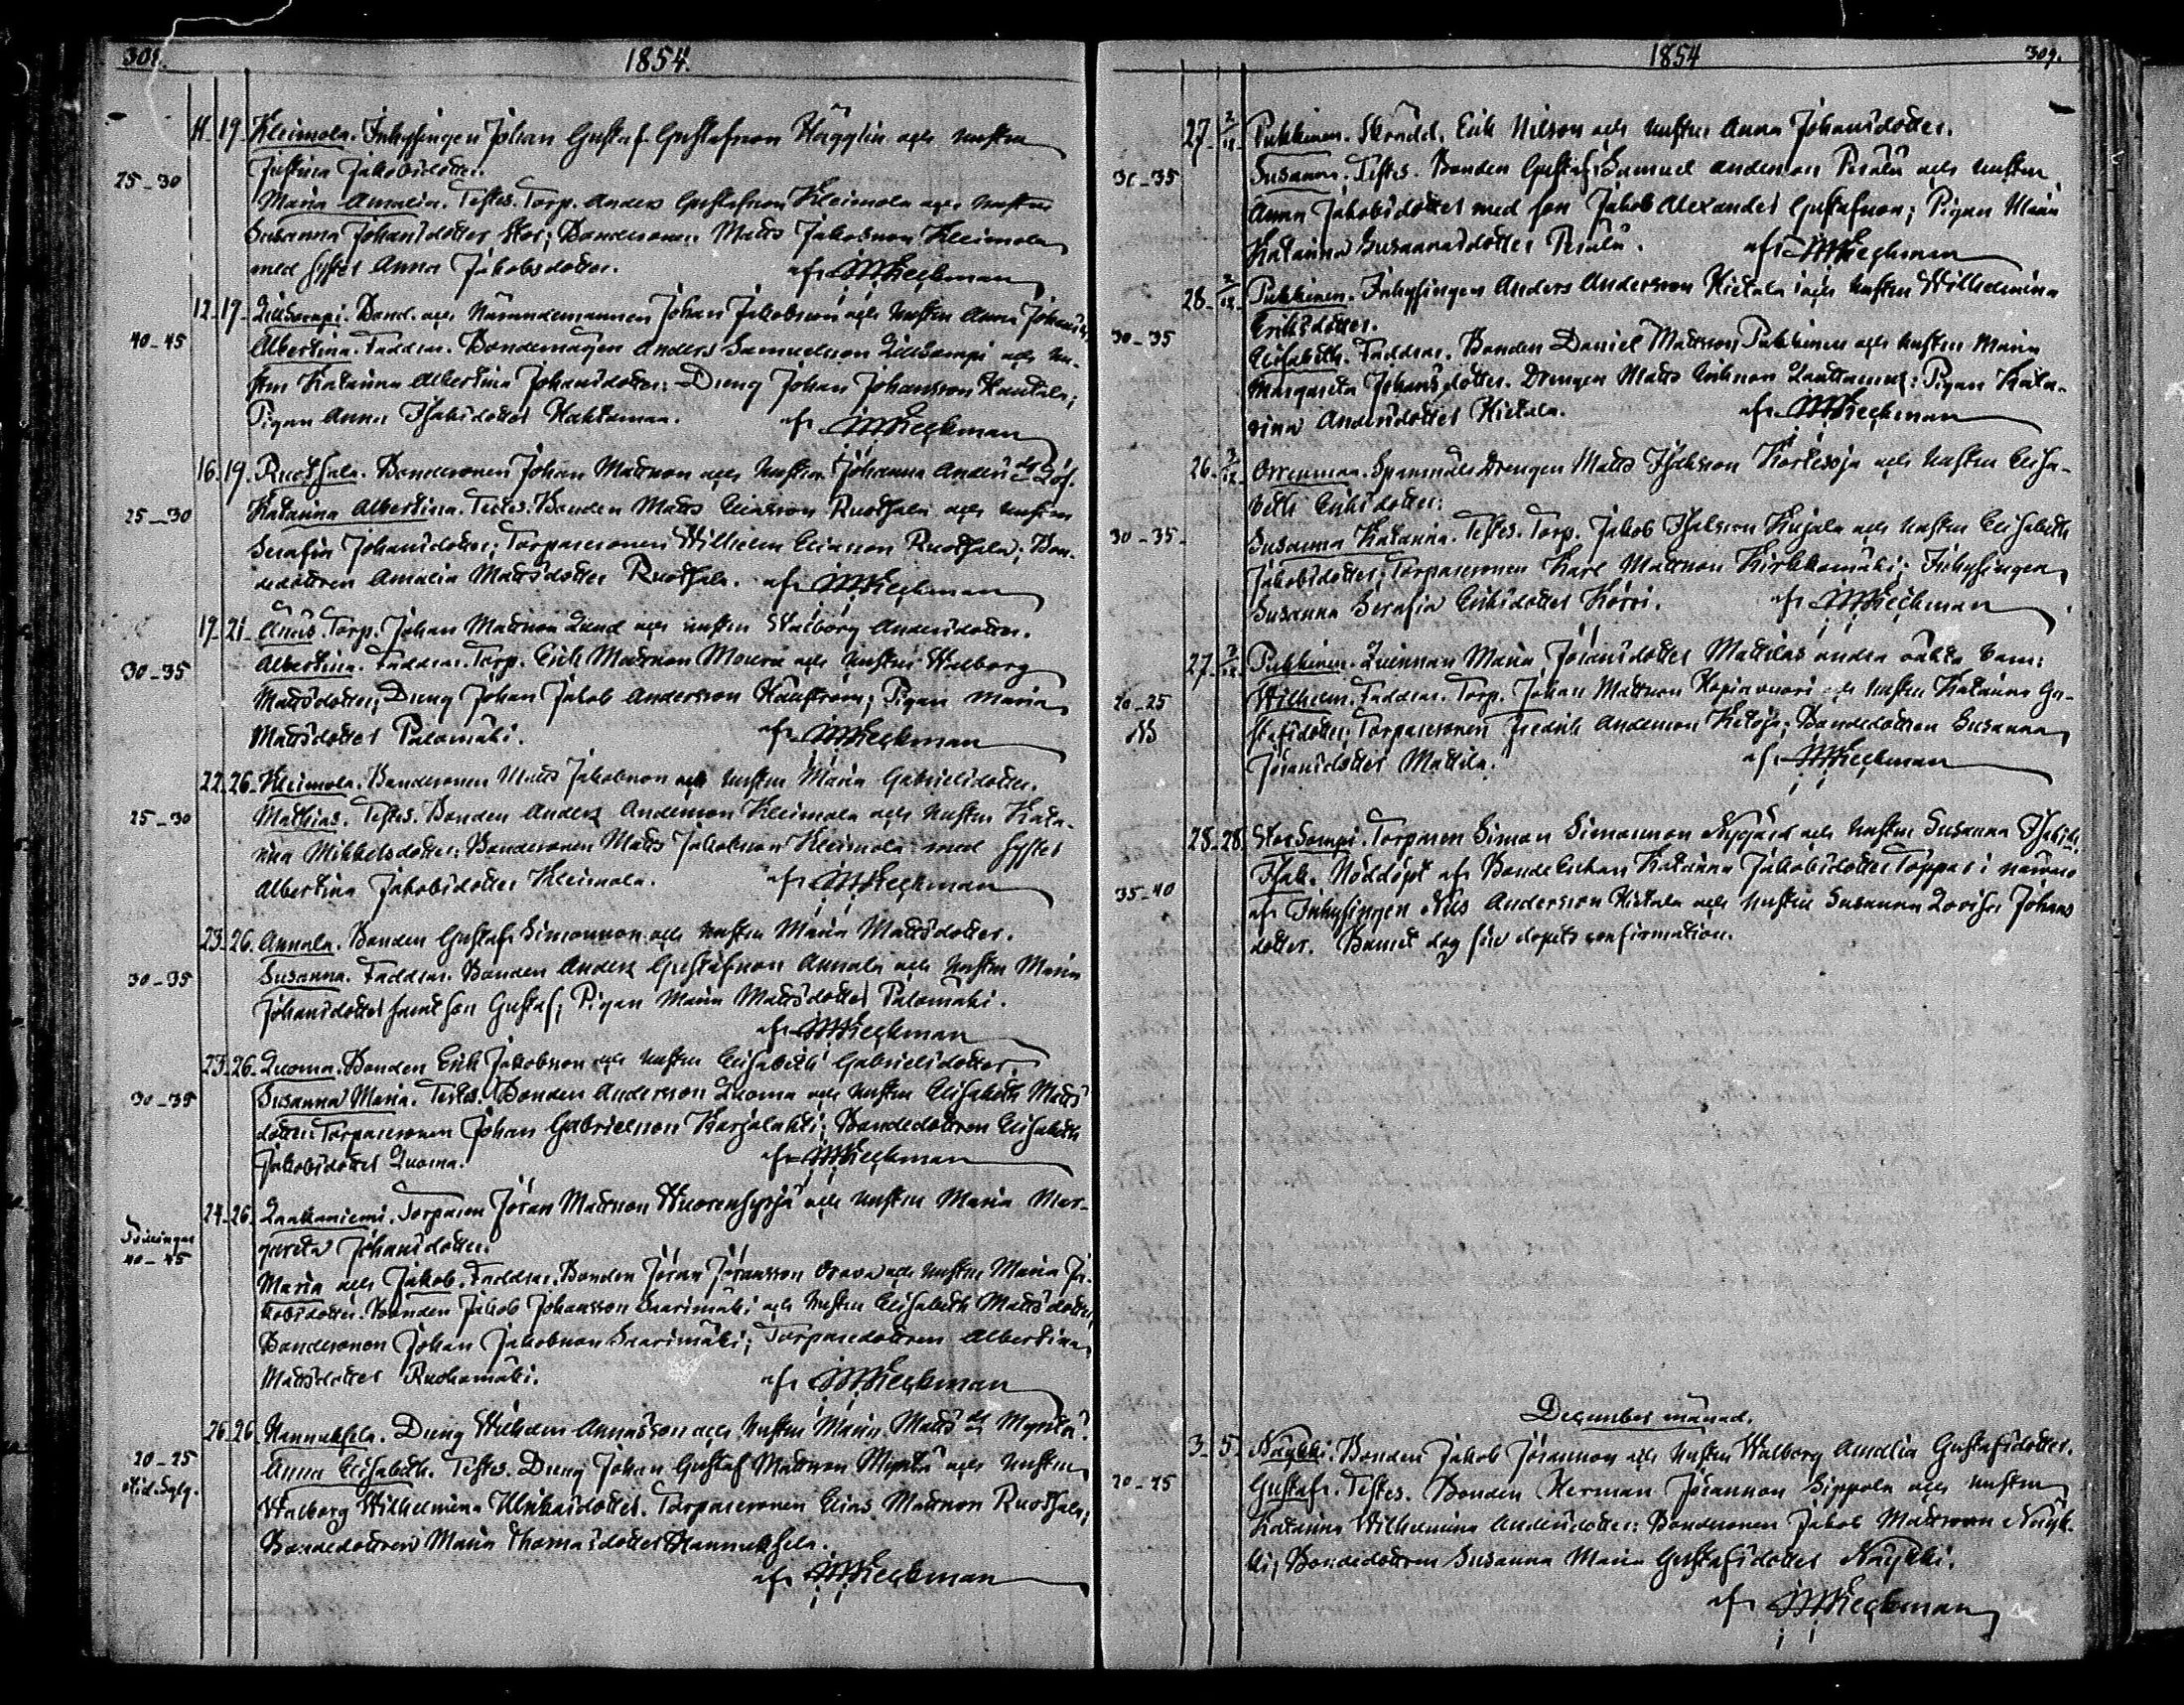 308. 1854.
11. 19. Kleimola. Inhysingen Johan Gustaf Gustafsson Hägglin och hustru
Justina Jakobsdotter.
25-30
Maria Amalia. Testes. Torp. Anders Gustafsson Kleimola och hustru
Susanna Johansdotter; Bondesonen Matts Jakobsson Kleimola
med syster Anna Jakobsdotter. af
12. 19. Lillsompi. Bond. och Nämndemannen Johan Jakobsson och hustru Anna Johansd.
40-45
Albertina. Faddrar. Bondemågen Anders Samuelsson Lillsompi och hu-
stru Katarina Albertina Johansdotter; Dreng Johan Johansson Hautala;
Pigan Anna Isaksdotter af
16. 19. Ruothala. Bondesonen Johan Mattsson och hustru Johanna Andersdr
25-30
Katarina Albertina. Testes. Bonden Matts Eliasson Ruothala och hustru
Serafia Johansdotter; Torparesonen Wilhelm Eliasson Ruothala; Bon-
dedottren Amalia Mattsdotter Ruothala. af
19. 21. Änäs. Torp. Johan Mattsson Lund och hustru Walborg Andersdotter.
30-35
Albertina. Faddrar. Torp. Erik Mattsson och hustru Walborg
Mattsdotter; Dreng Johan Jakob Andersson; Pigan Maria
Mattsdotter Palomäki. af
22. 26. Kleimola. Bondesonen Matts Jakobsson och hustru Maria Gabrielsdotter.
25-30
Mathias. Testes. Bonden Anders Andersson Kleimola och hustru Kata-
rina Mikkelsdotter; Bondesonen Matts Jakobsson Kleimola med syster
Albertina Jakobsdotter Kleimola. af
23. 26. Annala. Bonden Gustaf Simonsson och hustru Maria Mattsdotter.
30-35
Susanna. Faddrar. Bonden Anders Gustafsson Annala och hustru Maria
Johansdotter samt son Gustaf; Pigan Maria Mattsdotter Palomäki.
af
23. 26. Luoma. Bonden Erik Jakobsson och hustru Elisabeth Gabrielsdotter.
30-35
Susanna Maria. Testes. Bonden Andersson Luoma och hustru Elisabeth Matts
dotter; Torparesonen Johan Gabrielsson Karjalahti; Bondedottren Elisabeth
Jakobsdotter Luoma. af
24. 26. Laakaniemi. Torparen Jöran Mattsson Wuorensyrjä och hustru Maria Mar-
gareta Johansdotter.
Tvillingar
40-45
Maria och Jakob. Faddrar. Bonden Jöran Jöransson Orava och hustru Maria Ja-
kobsdotter. Bonden Jakob Johansson Saarimäki och hustru Elisabeth Mattsdotter
Bondesonen Johan Jakobsson Saarimäki; Torparedottren Albertina
Mattsdotter Ruohomäki. af
26. 26. Hannuksela. Dreng Wilhelm Annasson och hustru Maria Mattsdr Myntä.
20-25
Anna Elisabeth. Testes. Dreng Johan Gustaf Mattsson Myntä och hustru
Walborg Wilhelmina Ulrikasdotter. Torparesonen Elias Mattsson Ruothala;
Bondedottren Maria Thomasdotter Hannuksela.
af
1854 309.
27. 2/12. Pukkinen. Skrädd. Erik Nilsson och hustru Anna Johansdotter.
30-35
Susanna. Testes. Bonden Gustaf Samuel Andersson Perälä och hustru
Anna Jakobsdotter med son Jakob Alexander Gustafsson; Pigan Maria
Katarina Susannasdotter Perälä. af
28. 2/12. Pukkinen. Inhysingen Anders Andersson Hietala och hustru Wilhelmina
Eriksdotter.
30-35
Elisabeth. Faddrar. Bonden Daniel Mattsson Pukkinen och hustru Maria
Margareta Johansdotter. Drengen Matts Eriksson; Pigan Kata-
rina Andersdotter Hietala. af
26. 3/12. Orrenmaa. Spanmåls Drengen Matts Isaksson Kortesoja och hustru Elisa-
beth Eriksdotter.
30-35
Susanna Katarina. Testes. Torp. Jakob Isaksson Kujala och hustru Elisabeth
Jakobsdotter; Torparesonen Karl Mattsson Kirkkomäki; Inhysingen
Susanna Serafia Eriksdotter Körri. af
27. 3/12. Pukkinen. Qvinnan Maria Jöransdotter Mattilas andra oäkta barn:
20-25
Wilhelm. Faddrar. Torp. Johan Mattsson Hopiavuori och hustru Katarina Gu-
stafsdotter; Torparesonen Fredrik Andersson Ketoja; Bondedottren Susanna
Jöransdotter Mattila. af
28. 28. Storsompi. Torparen Simon Simonsson Nygård och hustru Susanna Isaksdr.
35-40
Isak. Nöddöpt af Bonde Enkan Katarina Jakobsdotter Toppar i närvaro
af Inhysingen Nils Andersson Hietala och hustru Susanna Lovisa Johans
dotter. Barnet dog före dopets confirmation.
December månad.
3. 5. Näykki. Bonden Jakob Jöransson och hustru Walborg Amalia Gustafsdotter.
20-25
Gustaf. Testes. Bonden Herman Jöransson Sippola och hustru
Katarina Wilhelmina Andersdotter; Bondesonen Jakob Mattsson Näyk-
ki; Bondedottren Susanna Maria Gustafsdotter Näykki.
af